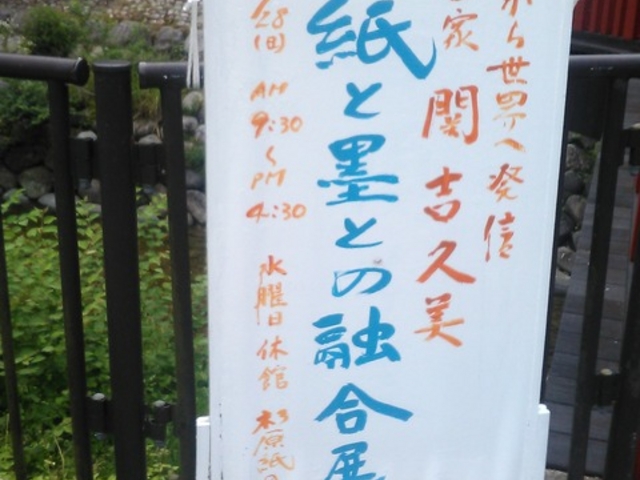 から世界へ発信
家 関吉久美
紙と墨との融合展
/28(日) AM 9:30〜PM 4:30 水曜日休館 杉原紙